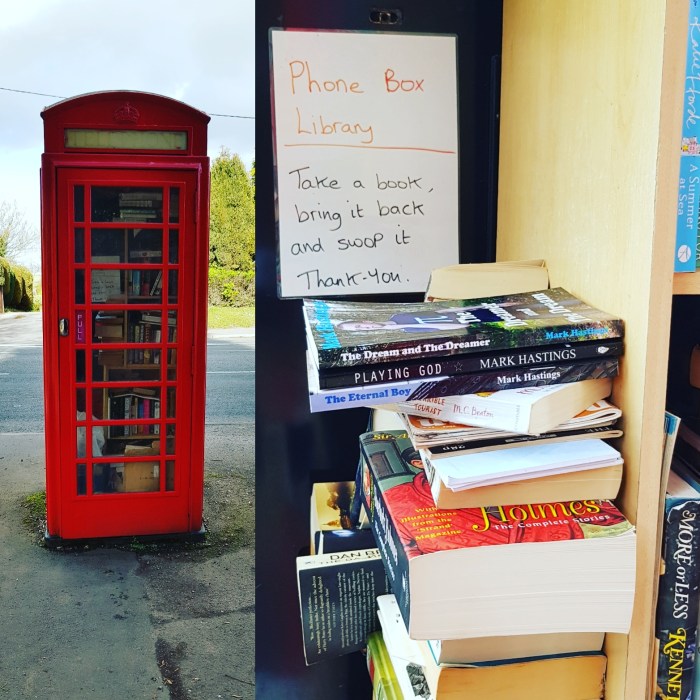 PULL
Phone Box
Library
Take a book,
bring it back
and swop it
Thank-You.
The Dream and The Dreamer
Mark Hastings
PLAYING GOD
MARK HASTINGS
The Eternal Boy
Mark Hastings
M.C. Beaton
Holmes
The Complete Stories
With
illustrations
from the
Strand
Magazine
DAN
A Summer
at Sea
MORE or LESS